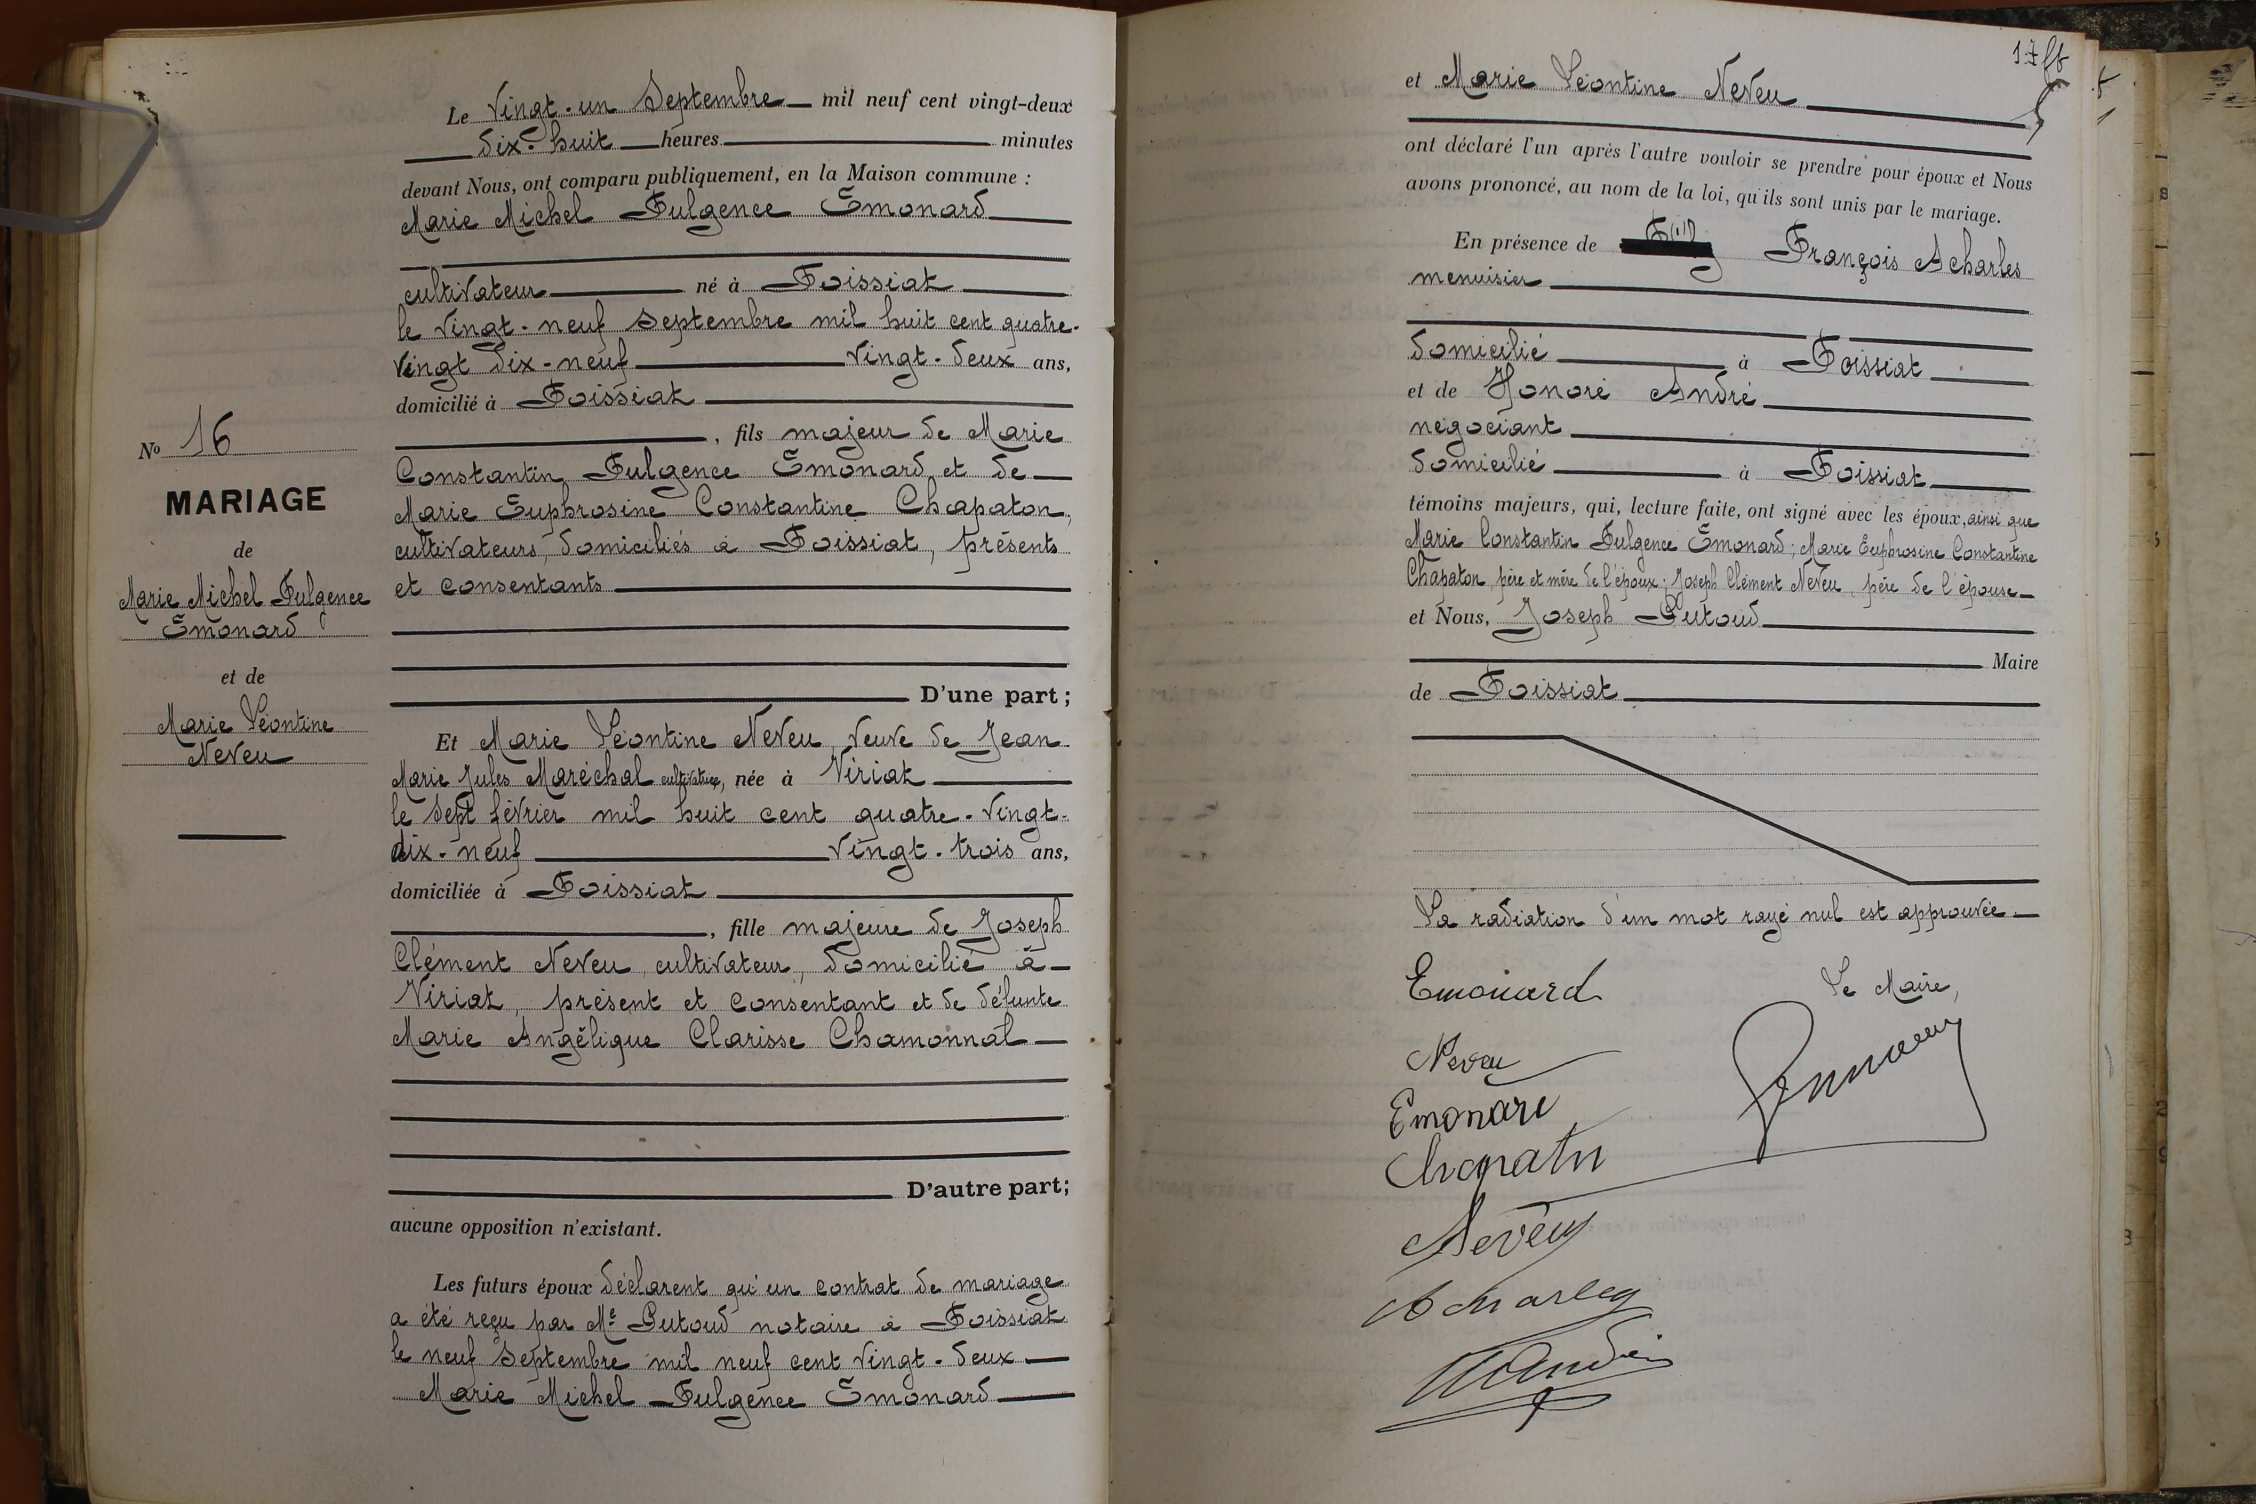 Le vingt-un Septembre mil neuf cent vingt-deux
dix-huit heures minutes
devant Nous, ont comparu publiquement, en la Maison commune :
Marie Michel Fulgence Emonard
cultivateur né à Foissiat
le vingt-neuf Septembre mil huit cent quatre-
vingt dix-neuf vingt-deux ans,
domicilié à Foissiat
, fils majeur de Marie
Constantin Fulgence Emonard et de
Marie Euphrosine Constantine Chapaton,
cultivateurs, domiciliés à Foissiat, présents
et consentants
D'une part ;
Et Marie Léontine Neveu, veuve de Jean
Marie Jules Maréchal cultivatrice, née à Viriat
le sept février mil huit cent quatre-vingt-
dix-neuf vingt-trois ans,
domiciliée à Foissiat
, fille majeure de Joseph
Clément Neveu, cultivateur, domicilié à
Viriat, présent et consentant et de défunte
Marie Angélique Clarisse Chamonnal
D'autre part ;
aucune opposition n'existant.
Les futurs époux déclarent qu'un contrat de mariage
a été reçu par Me Putoud notaire à Foissiat
le neuf Septembre mil neuf cent vingt-deux
Marie Michel Fulgence Emonard
No 16
MARIAGE
de
Marie Michel Fulgence
Emonard
et de
Marie Léontine
Neveu
17
et Marie Léontine Neveu
ont déclaré l'un après l'autre vouloir se prendre pour époux et Nous
avons prononcé, au nom de la loi, qu'ils sont unis par le mariage.
En présence de François Acharles
menuisier
domicilié à Foissiat
et de Honoré André
négociant
domicilié à Foissiat
témoins majeurs, qui, lecture faite, ont signé avec les époux, ainsi que
Marie Constantin Fulgence Emonard ; Marie Euphrosine Constantine
Chapaton, père et mère de l'époux ; Joseph Clément Neveu, père de l'épouse
et Nous, Joseph Putoud
Maire
de Foissiat
La radiation d'un mot rayé nul est approuvée.
Emonard
Le Maire,
Neveu
Emonard
Chapaton
Neveu
Acharles